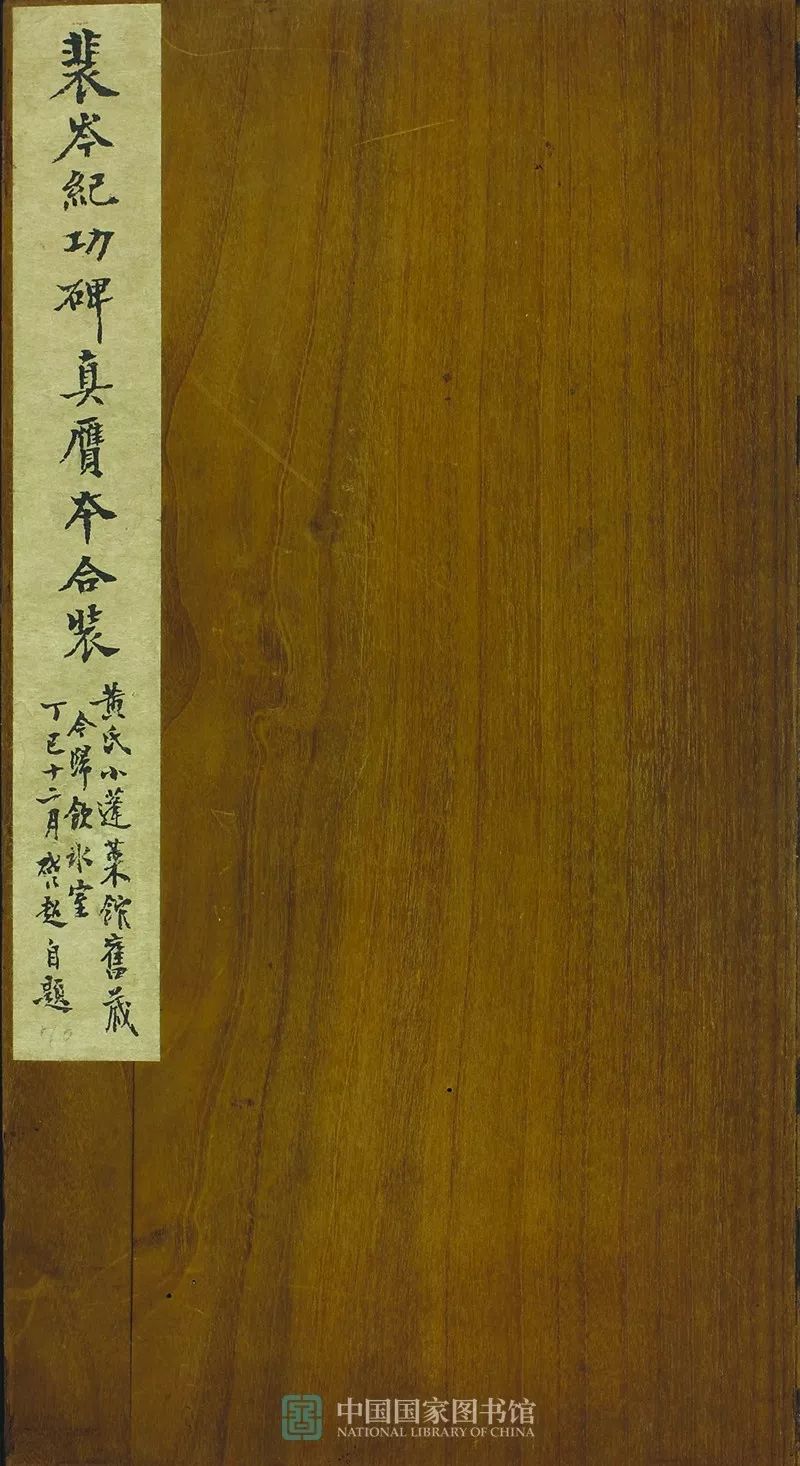 裴岑紀功碑真贋本合裝
黃氏小蓬萊館舊藏
今歸飲冰室
丁巳十二月啓超自題
中国国家图书馆
NATIONAL LIBRARY OF CHINA